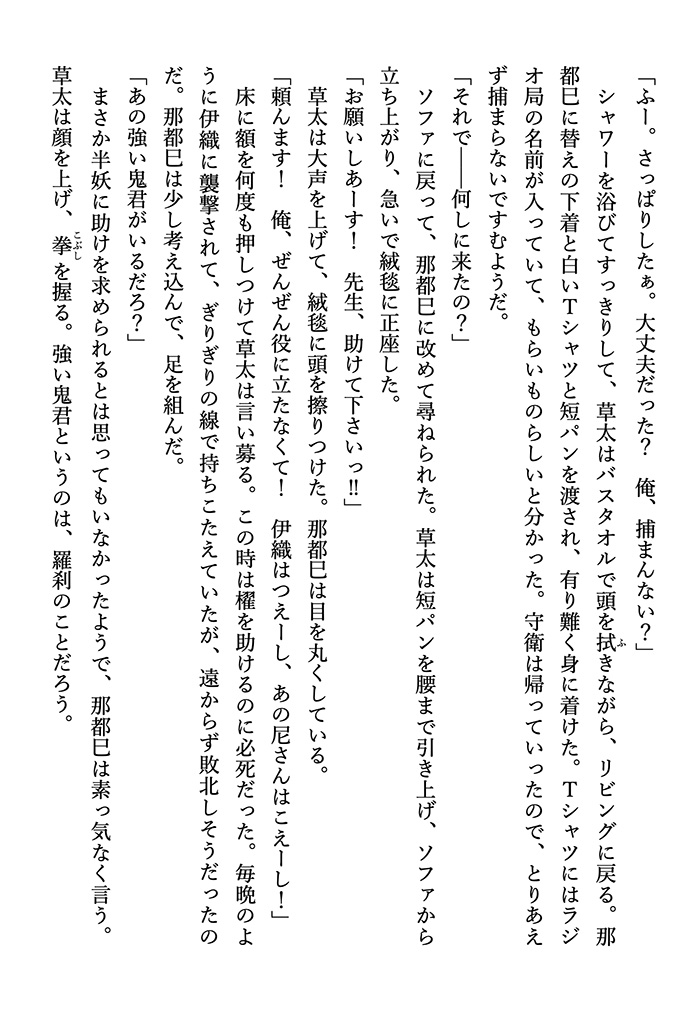 「ふー。さっぱりしたぁ。大丈夫だった？　俺、捕まんない？」
　シャワーを浴びてすっきりして、草太はバスタオルで頭を拭きながら、リビングに戻る。那
都巳に替えの下着と白いTシャツと短パンを渡され、有り難く身に着けた。Tシャツにはラジ
オ局の名前が入っていて、もらいものらしいと分かった。守衛は帰っていったので、とりあえ
ず捕まらないですむようだ。
「それで――何しに来たの？」
　ソファに戻って、那都巳に改めて尋ねられた。草太は短パンを腰まで引き上げ、ソファから
立ち上がり、急いで絨毯に正座した。
「お願いしあーす！　先生、助けて下さいっ‼」
　草太は大声を上げて、絨毯に頭を擦りつけた。那都巳は目を丸くしている。
「頼んます！　俺、ぜんぜん役に立たなくて！　伊織はつえーし、あの尼さんはこえーし！」
　床に額を何度も押しつけて草太は言い募る。この時は櫂を助けるのに必死だった。毎晩のよ
うに伊織に襲撃されて、ぎりぎりの線で持ちこたえていたが、遠からず敗北しそうだったの
だ。那都巳は少し考え込んで、足を組んだ。
「あの強い鬼君がいるだろ？」
　まさか半妖に助けを求められるとは思ってもいなかったようで、那都巳は素っ気なく言う。
草太は顔を上げ、拳を握る。強い鬼君というのは、羅刹のことだろう。